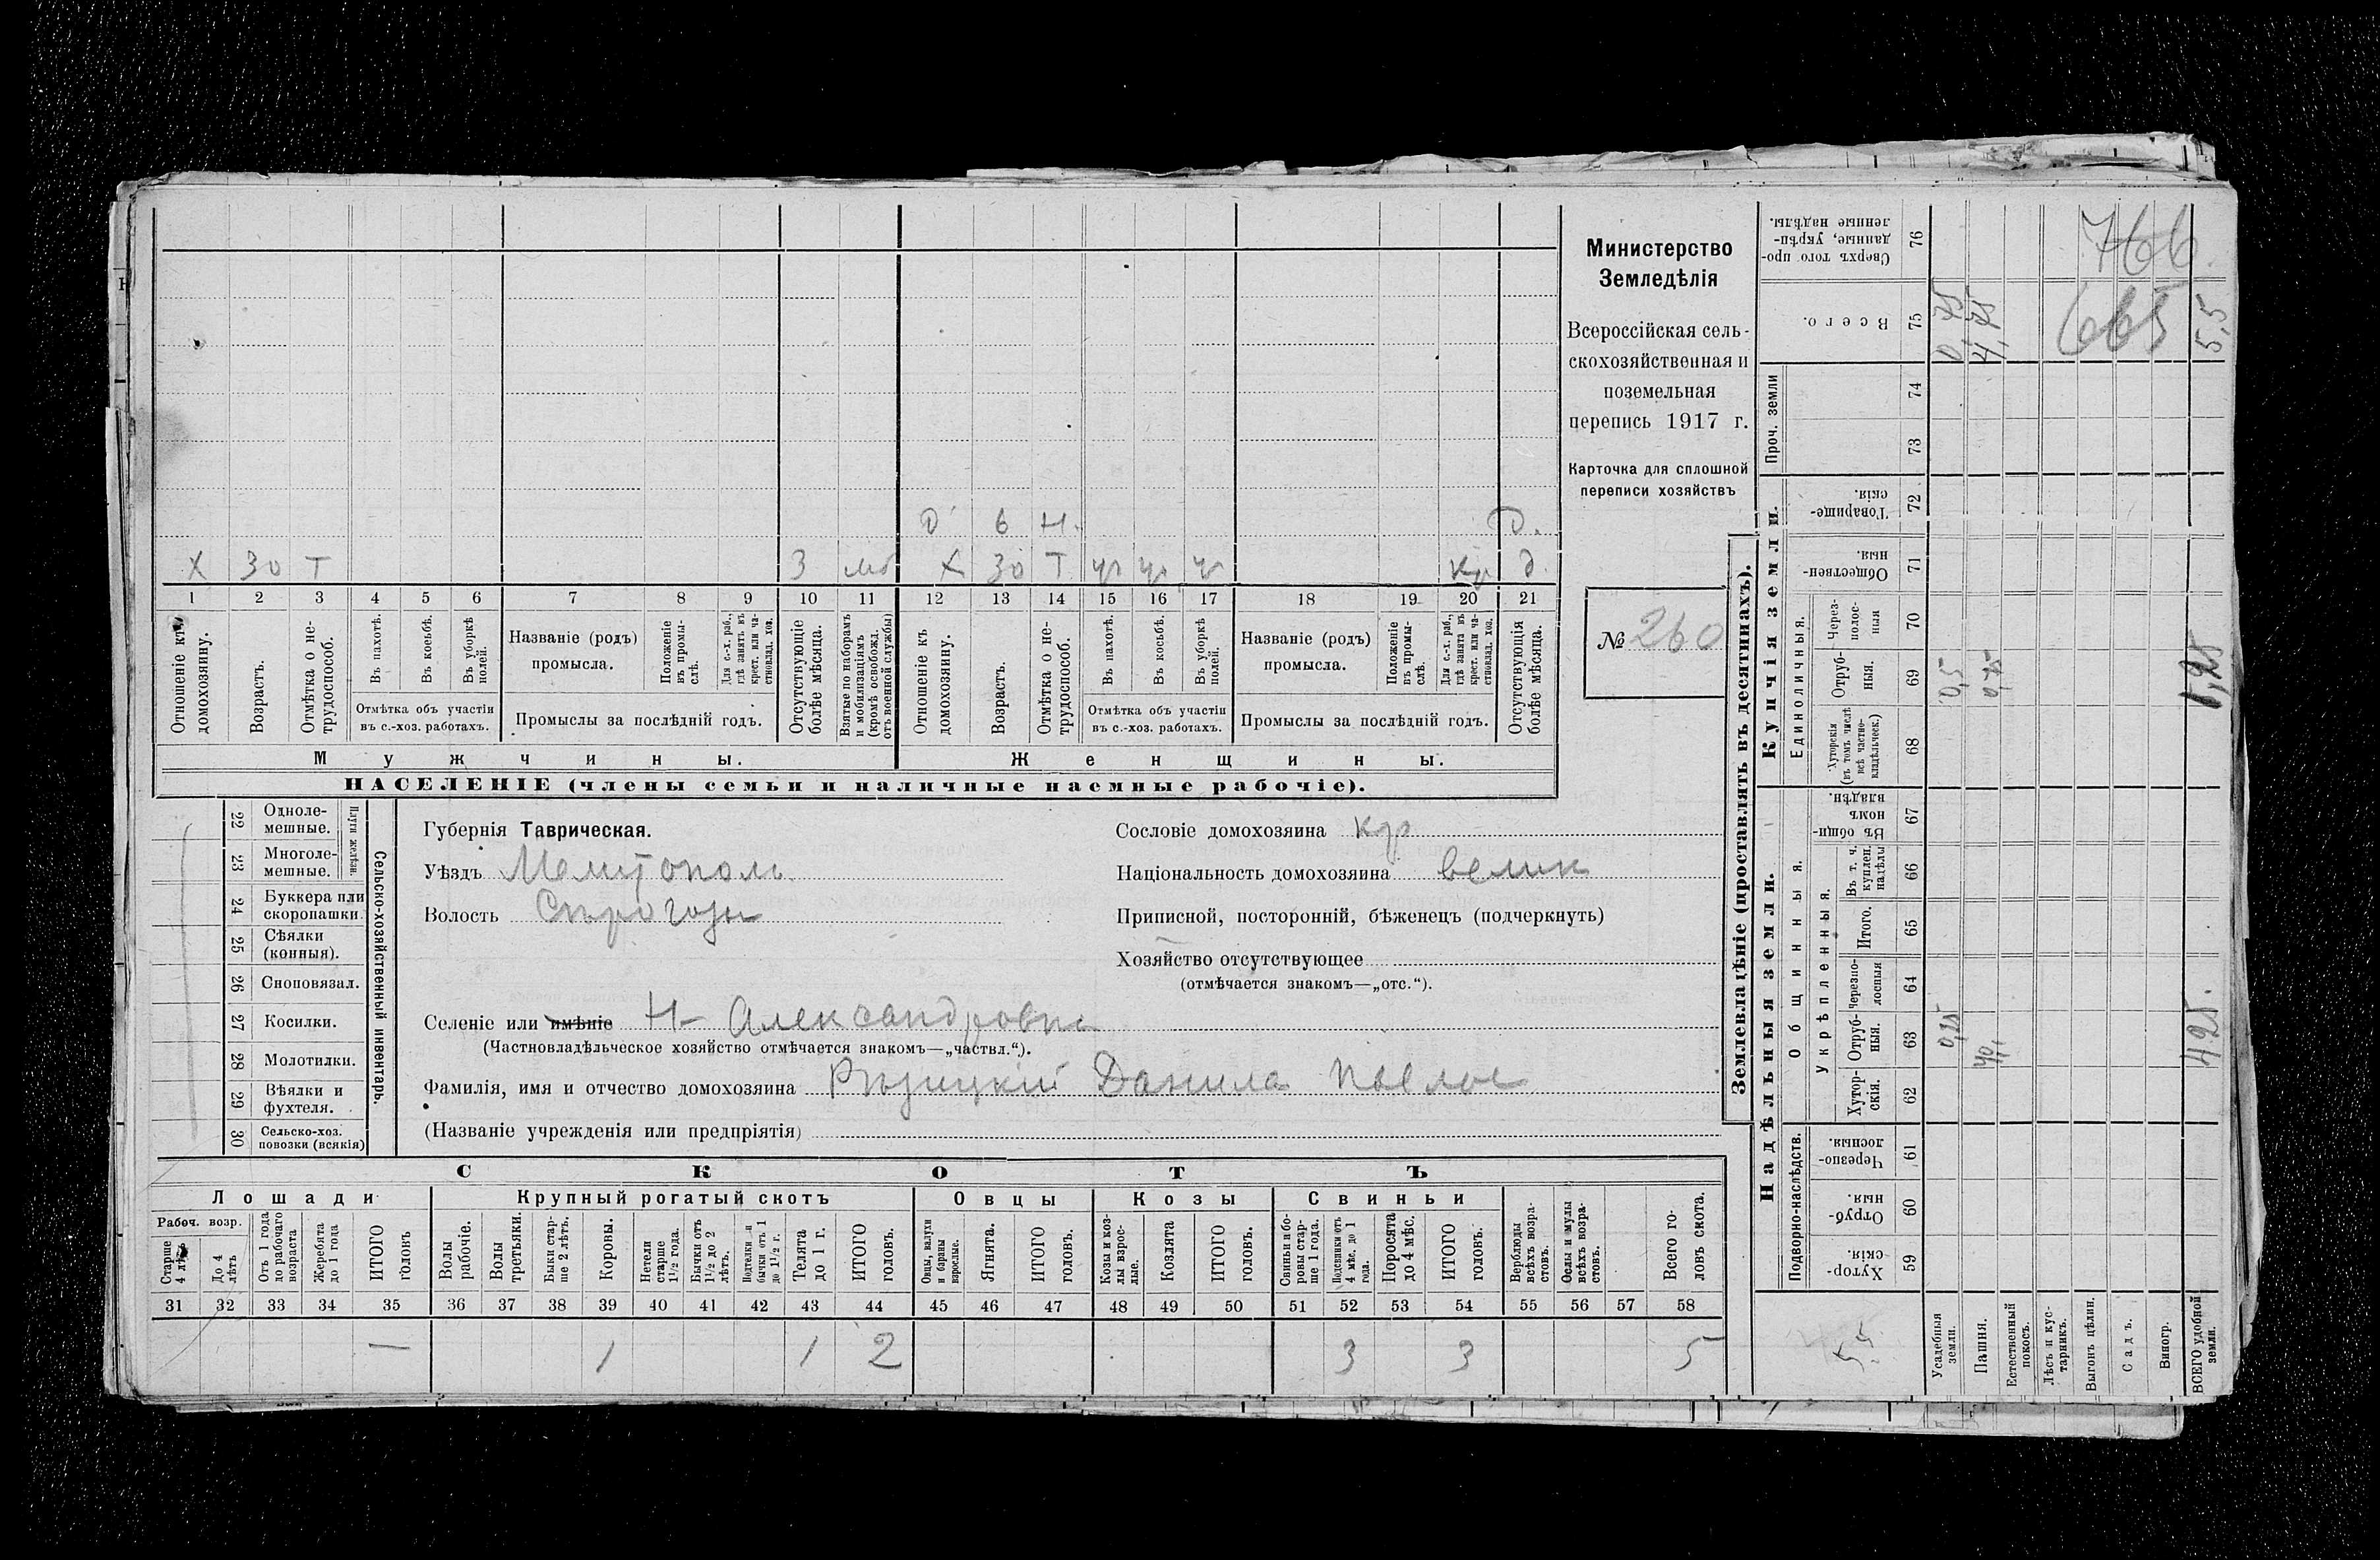 Министерство
Земледѣлія
Всероссійская сель-
скохозяйственная и
поземельная
перепись 1917 г.
Карточка для сплошной
переписи хозяйствъ
№ 260
D 6 Н. D.
Х 30 Т 3 мб Х 30 Т ус ус ус Кр д.
1 2 3 4 5 6 7 8 9 10 11 12 13 14 15 16 17 18 19 20 21
Отношеніе къ домохозяину.
Возрастъ.
Отмѣтка о не-трудоспособ.
Въ пахотѣ.
Въ косьбѣ.
Въ уборкѣ полей.
Отмѣтка объ участіи
въ с.-хоз. работахъ.
Названіе (родъ)
промысла.
Положеніе въ промы-слѣ.
Для с.-х. раб., гдѣ занятъ въ крест. или ча-стновлад. хоз.
Промыслы за послѣдній годъ.
Отсутствующіе болѣе мѣсяца.
Взятые по наборамъ и мобилизаціямъ (кромѣ освобожд. отъ военной службы)
Отношеніе къ домохозяину.
Возрастъ.
Отмѣтка о не-трудоспособ.
Въ пахотѣ.
Въ косьбѣ.
Въ уборкѣ полей.
Отмѣтка объ участіи
въ с.-хоз. работахъ.
Названіе (родъ)
промысла.
Положеніе въ промы-слѣ.
Для с.-х. раб., гдѣ занята въ крест. или ча-стновлад. хоз.
Промыслы за послѣдній годъ.
Отсутствующія болѣе мѣсяца.
Мужчины.
Женщины.
НАСЕЛЕНІЕ (члены семьи и наличные наемные рабочіе).
22 Одноле-мешные.
23 Многоле-мешные.
Плуги желѣзн.
24 Буккера или скоропашки.
25 Сѣялки (конныя).
26 Сноповязал.
27 Косилки.
28 Молотилки.
29 Вѣялки и фухтеля.
30 Сельско-хоз. повозки (всякія)
Сельско-хозяйственный инвентарь.
Губернія Таврическая.
Уѣздъ Мелитополь
Волость Сѣрогозы
Селеніе или имѣніе Н- Александровка
(Частновладѣльческое хозяйство отмѣчается знакомъ—„частвл.“).
Фамилія, имя и отчество домохозяина Рѣзицкій Данила Павлов
(Названіе учрежденія или предпріятія)
Сословіе домохозяина кр
Національность домохозяина велик
Приписной, посторонній, бѣженецъ (подчеркнуть)
Хозяйство отсутствующее
(отмѣчается знакомъ—„отс.“).
СКОТЪ
Лошади
Крупный рогатый скотъ
Овцы
Козы
Свиньи
Рабоч. возр.
Старше 4 лѣтъ
До 4 лѣтъ
Отъ 1 года до рабочаго возраста
Жеребята до 1 года
ИТОГО головъ
Волы рабочіе.
Волы третьяки.
Быки стар-ше 2 лѣтъ.
Коровы.
Нетели старше 1½ года.
Бычки отъ 1½ до 2 лѣтъ.
Подтелки и бычки отъ 1 до 1½ г.
Телята до 1 г.
ИТОГО головъ.
Овцы, валухи и бараны взрослые.
Ягнята.
ИТОГО головъ.
Козы и коз-лы взрос-лые.
Козлята
ИТОГО головъ.
Свиньи и бо-ровы стар-ше 1 года.
Подсвинки отъ 4 мѣс. до 1 года.
Поросята до 4 мѣс.
ИТОГО головъ.
Верблюды всѣхъ возра-стовъ.
Ослы и мулы всѣхъ возра-стовъ.
Всего го-ловъ скота.
31 32 33 34 35 36 37 38 39 40 41 42 43 44 45 46 47 48 49 50 51 52 53 54 55 56 57 58
— 1 1 2 3 3 5
Землевладѣніе (проставлять въ десятинахъ).
Купчія земли.
Надѣльныя земли.
Сверхъ того про-данные, укрѣп-ленные надѣлы. 76
766
Всего. 75
0,75
4,75
665
5,5
Проч. земли
74
73
Товарище-скія. 72
Обществен-ныя. 71
Единоличныя.
Через-полос-ныя 70
Отруб-ныя. 69
0,5
0,75
1,25
Хуторскія (въ томъ числѣ всѣ частно-владѣльческ.) 68
Общинныя.
Въ общи-номъ владѣн. 67
Укрѣпленныя.
Въ т. ч. куплен. надѣлы 66
Итого. 65
Черезпо-лосныя 64
Отруб-ныя. 63
0,25
4,0
4,25.
Хутор-скія. 62
Подворно-наслѣдств.
Черезпо-лосныя. 61
Отруб-ныя. 60
Хутор-скія. 59
Усадебныя земли.
Пашня.
Естественный покосъ.
Лѣсъ и кус-тарникъ.
Выгонъ цѣлин.
Садъ.
Виногр.
ВСЕГО удобной земли.